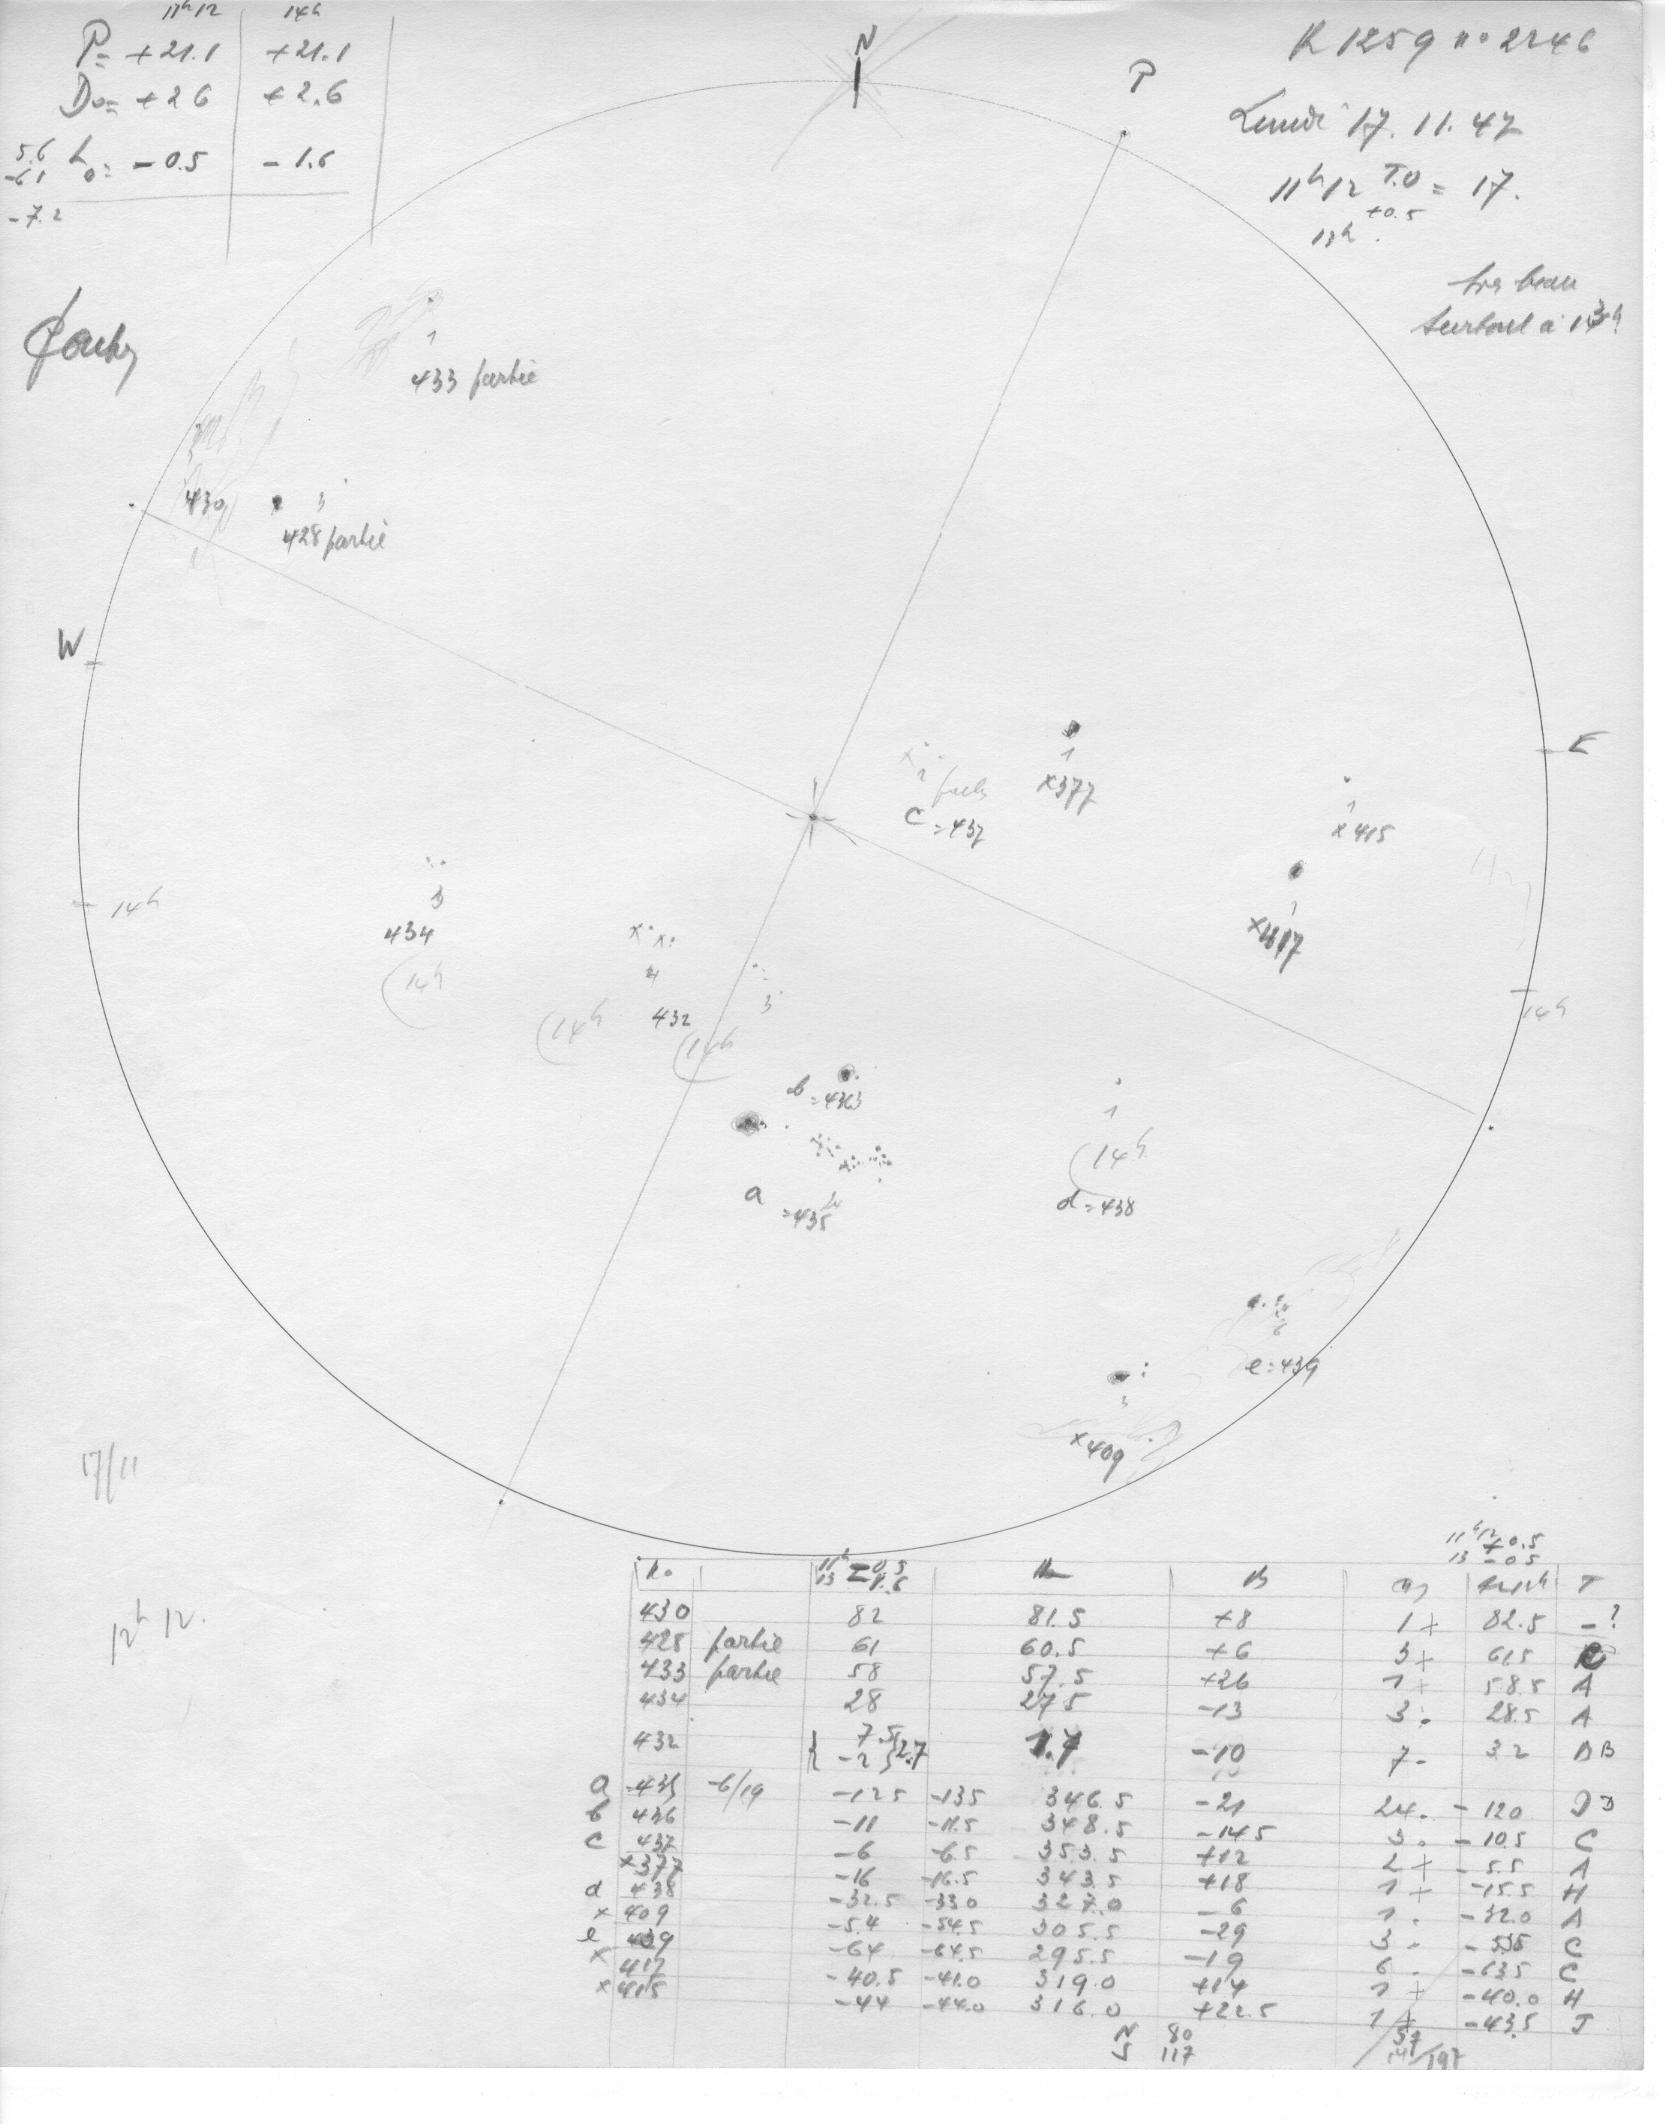 11h12 14h
P= +21.1 +21.1
Do= +2.6 +2.6
5.6 Lo= -0.5 -1.6
-6.1
-7.2
N
P
R 1259 no 2246
Lundi 17.11.47
11h12 T.U = 17.
+0.5
13h.
très beau
surtout à 13h
1
433 partie
430
3
428 partie
1
W
E
2
C=437
1
x377
1
x415
1
x417
14h
14h
3
434
(14h
4
432
(14h
3
(14h
b=436
a
=435
24
1
(14h
d=438
6
e=439
3
x409
17/11
12h12.
11h12 +0.5
13 -0.5
No B T
430 82 81.5 +8 1+ 82.5 -?
428 partie 61 60.5 +6 3+ 61.5
433 partie 58 57.5 +26 1+ 58.5 A
434 28 27.5 -13 3. 28.5 A
432 { 7.5 -2 } 2.7 1.7 -10 7- 3.2 DB
a =435 -6/19 -12.5 -13.5 346.5 -21 24. -12.0 D
b 436 -11 -11.5 348.5 -14.5 3. -10.5 C
C 437 -6 -6.5 353.5 +12 2+ -5.5 A
x377 -16 -16.5 343.5 +18 1+ -15.5 H
d 438 -32.5 -33.0 327.0 -6 1. -32.0 A
x 409 -54 -54.5 305.5 -29 3- -53.5 C
e 439 -64 -64.5 295.5 -19 6. -63.5 C
x 417 -40.5 -41.0 319.0 +14 1+ -40.0 H
x 415 -44 -44.0 316.0 +22.5 1+ -43.5 J
N 80 57
S 117 14/197